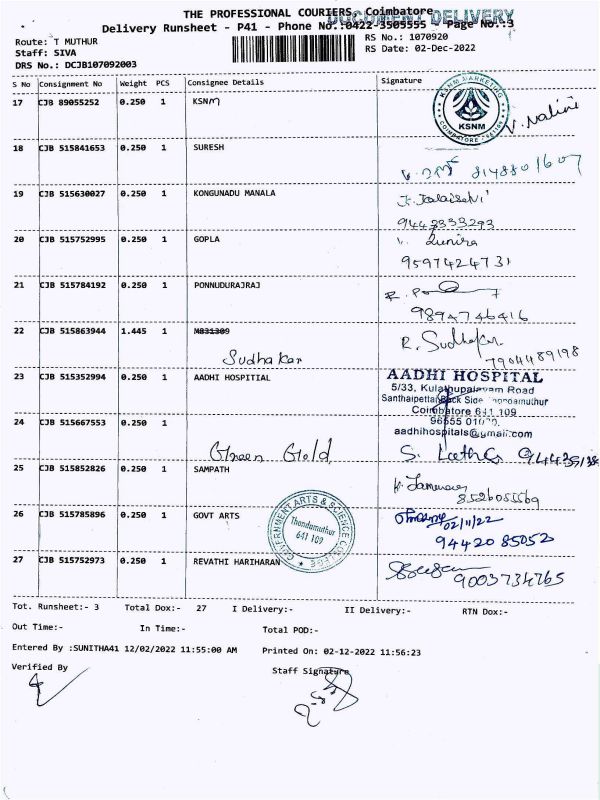 THE PROFESSIONAL COURIERS, Coimbatore
DOCUMENT DELIVERY
Delivery Runsheet - P41 - Phone No.:0422-3505555 - Page No.:3
Route: T MUTHUR
RS No.: 1070920
Staff: SIVA
RS Date: 02-Dec-2022
DRS No.: DCJB107092003
S No Consignment No Weight PCS Consignee Details Signature
17 CJB 89055252 0.250 1 KSNM
KSNM MARKETING
KSNM
COIMBATORE
V. Nalini
18 CJB 515841653 0.250 1 SURESH
8148801607
19 CJB 515630027 0.250 1 KONGUNADU MANALA
9443333293
20 CJB 515752995 0.250 1 GOPLA
9597424731
21 CJB 515784192 0.250 1 PONNUDURAJRAJ
9894746416
22 CJB 515863944 1.445 1 M831309
Sudhakar
R. Sudhakar
7904489198
23 CJB 515352994 0.250 1 AADHI HOSPITIAL
AADHI HOSPITAL
5/33, Kulathupalayam Road
Santhaipettai Back Side Thondamuthur
Coimbatore 641 109
aadhihospitals@gmail.com
24 CJB 515667553 0.250 1
Green Gold
S.
25 CJB 515852826 0.250 1 SAMPATH
8526055569
26 CJB 515785896 0.250 1 GOVT ARTS
GOVERNMENT ARTS & SCIENCE COLLEGE
Thondamuthur
641 109
02/11/22
9442085052
27 CJB 515752973 0.250 1 REVATHI HARIHARAN
9003734765
Tot. Runsheet:- 3 Total Dox:- 27 I Delivery:- II Delivery:- RTN Dox:-
Out Time:- In Time:- Total POD:-
Entered By :SUNITHA41 12/02/2022 11:55:00 AM Printed On: 02-12-2022 11:56:23
Verified By Staff Signature